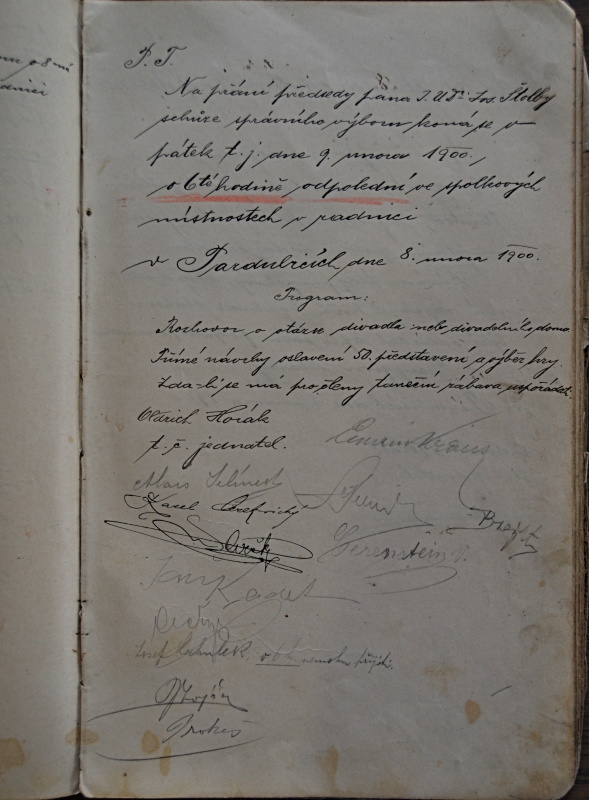 P. T.
Na přání předsedy pána J. U. Dr. Jos. Štolby
schůze správního výboru koná se v
pátek t. j. dne 9. února 1900.,
o 6té hodině odpolední ve spolkových
místnostech v radnici
v Pardubicích dne 8. února 1900.
Program:
Rozhovor o otázce divadla neb divadelního domu.
návrhy oslavení 50. představení, a výběr hry.
Zda-li se má pro členy taneční zábava uspořádat.
Oldřich Horák
t. č. jednatel.
Kraus
Alois
Karel
Gerenstein
Kadet
Josef nemohu přijíti.
Stoján
Prokeš